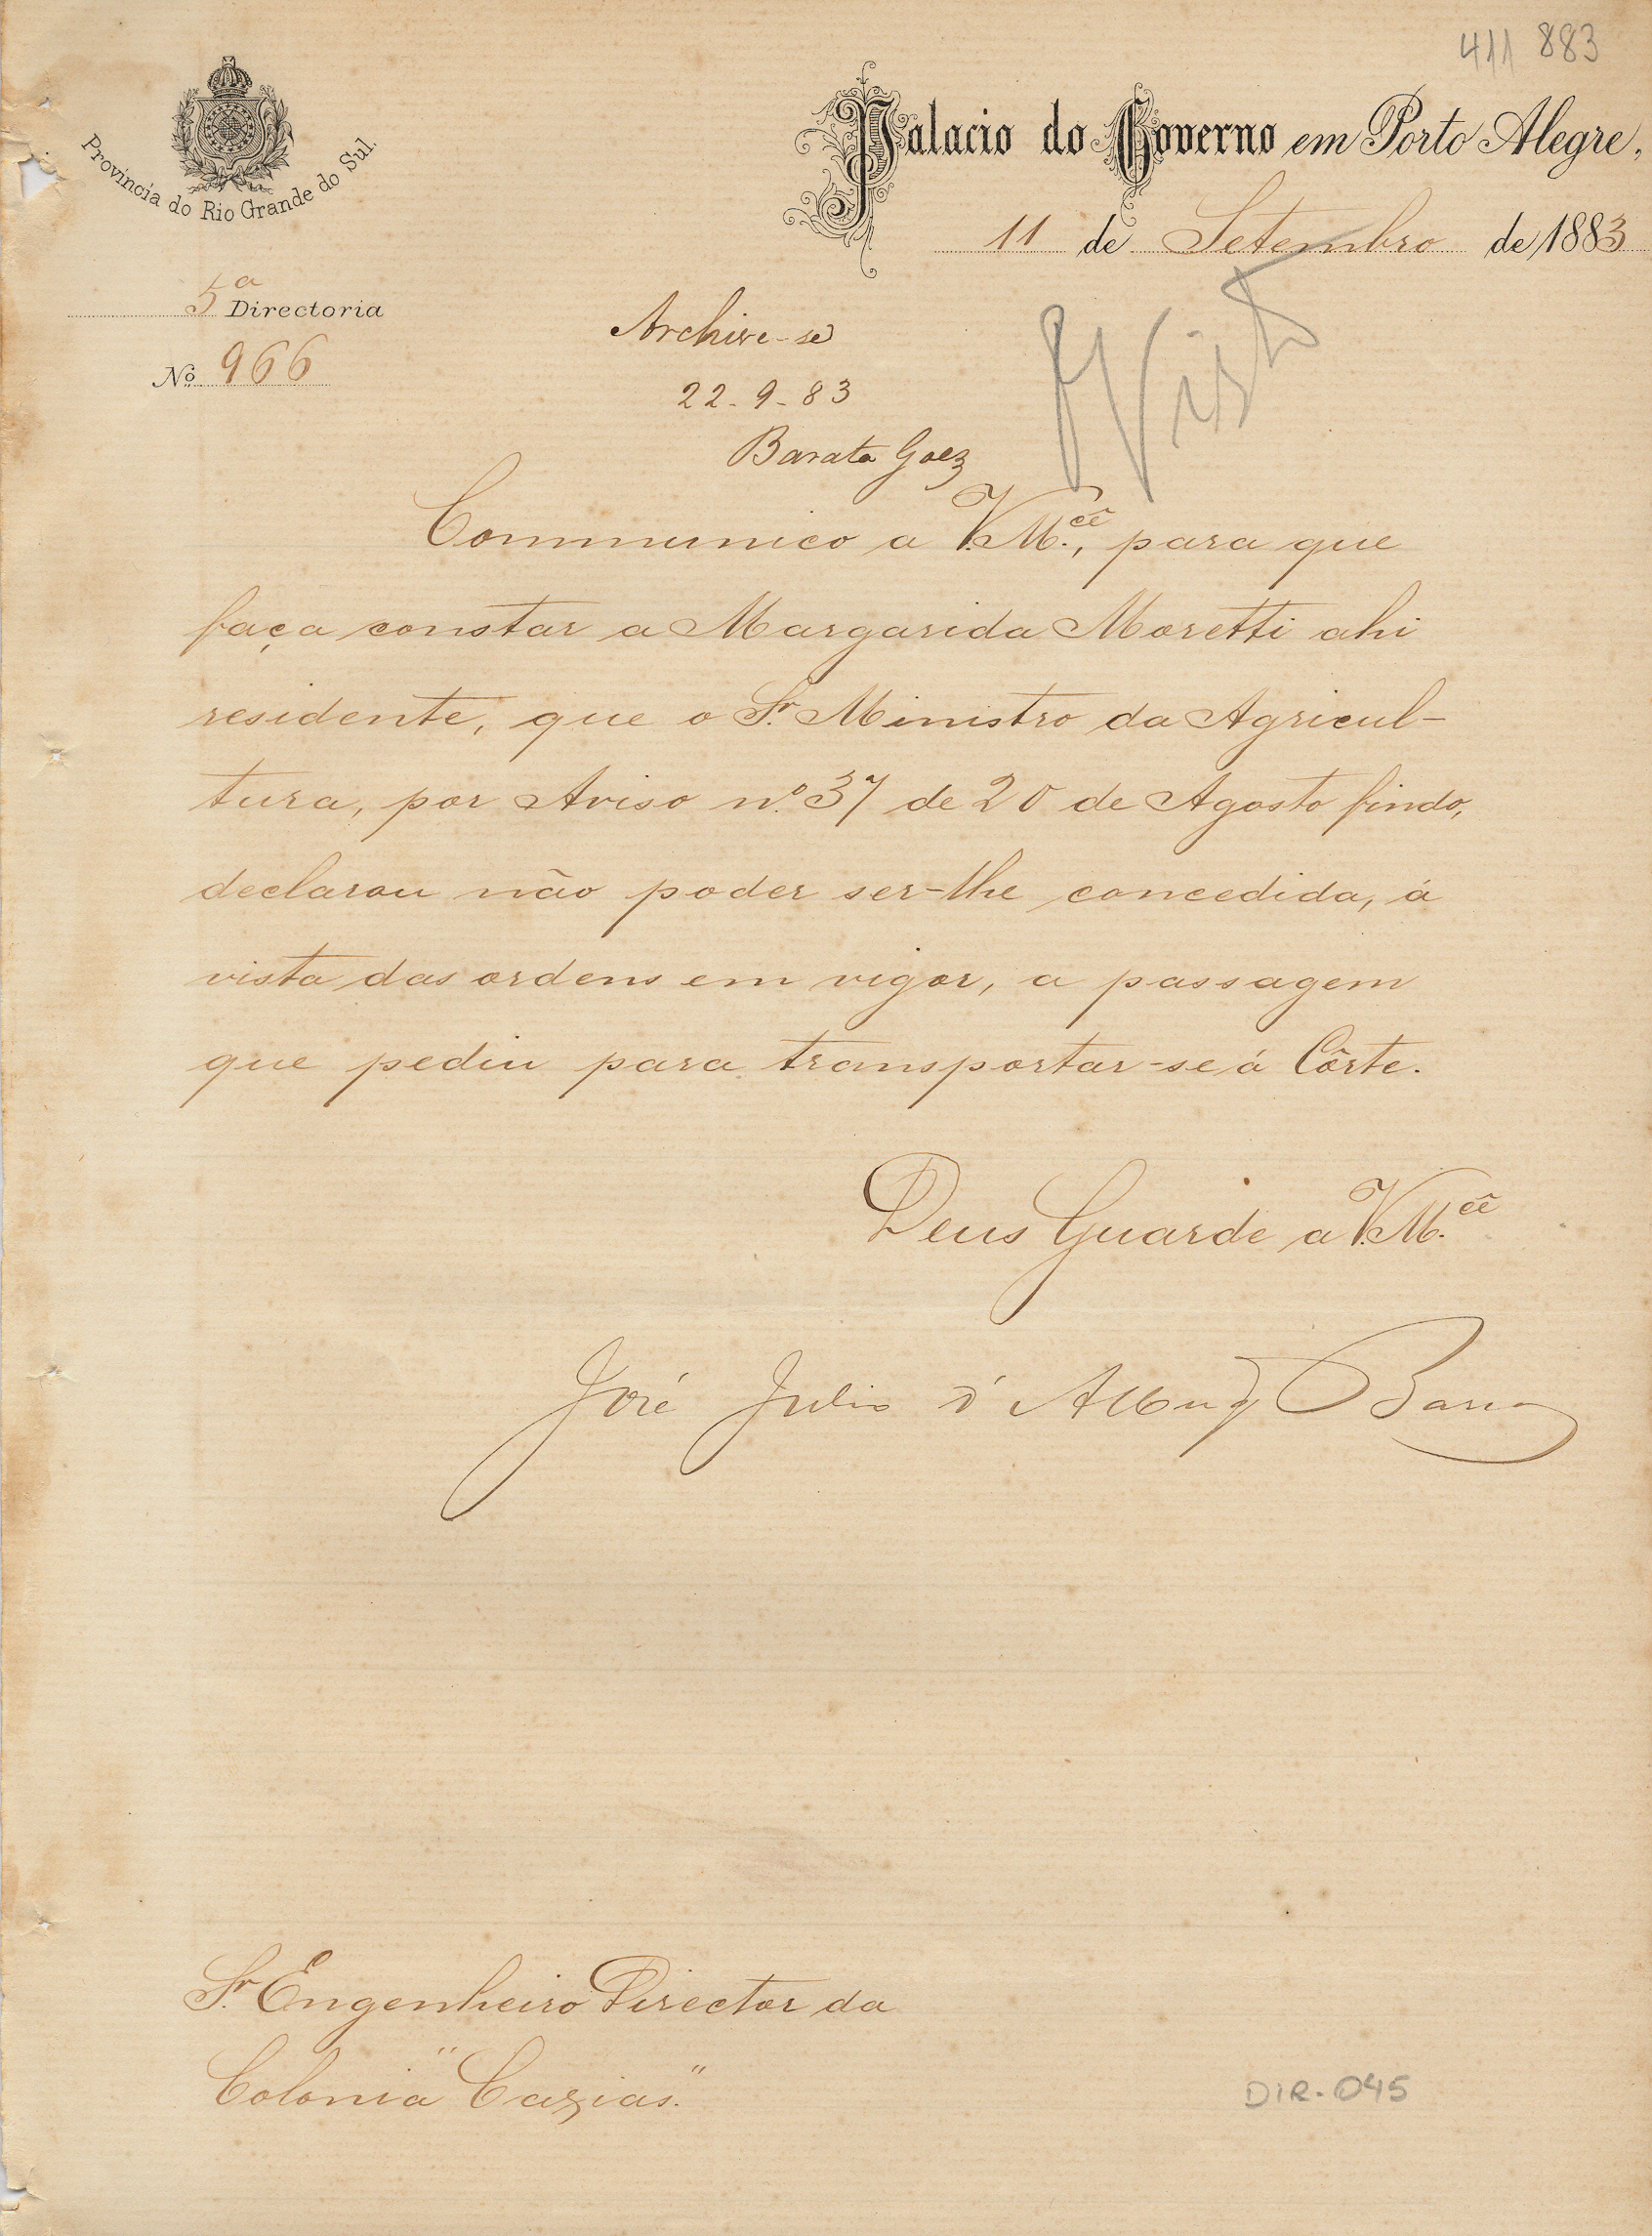 411 883
Provincia do Rio Grande do Sul.
Palacio do Governo em Porto Alegre,
11 de Setembro de 1883
5ª Directoria
Nº 966
Archive-se
22-9-83
Barata Goez
Visto
Communico a V.M.cê, para que
faça constar a Margarida Moretti ahi
residente, que o Sr. Ministro da Agricul-
tura, por Aviso nº 37 de 20 de Agosto findo,
declarou não poder ser-lhe concedida, á
vista das ordens em vigor, a passagem
que pediu para transportar-se á Côrte.
Deus Guarde a V.M.cê
José Julio d'Albuq Barros
Sr. Engenheiro Director da
Colonia "Caxias."
DIR-045